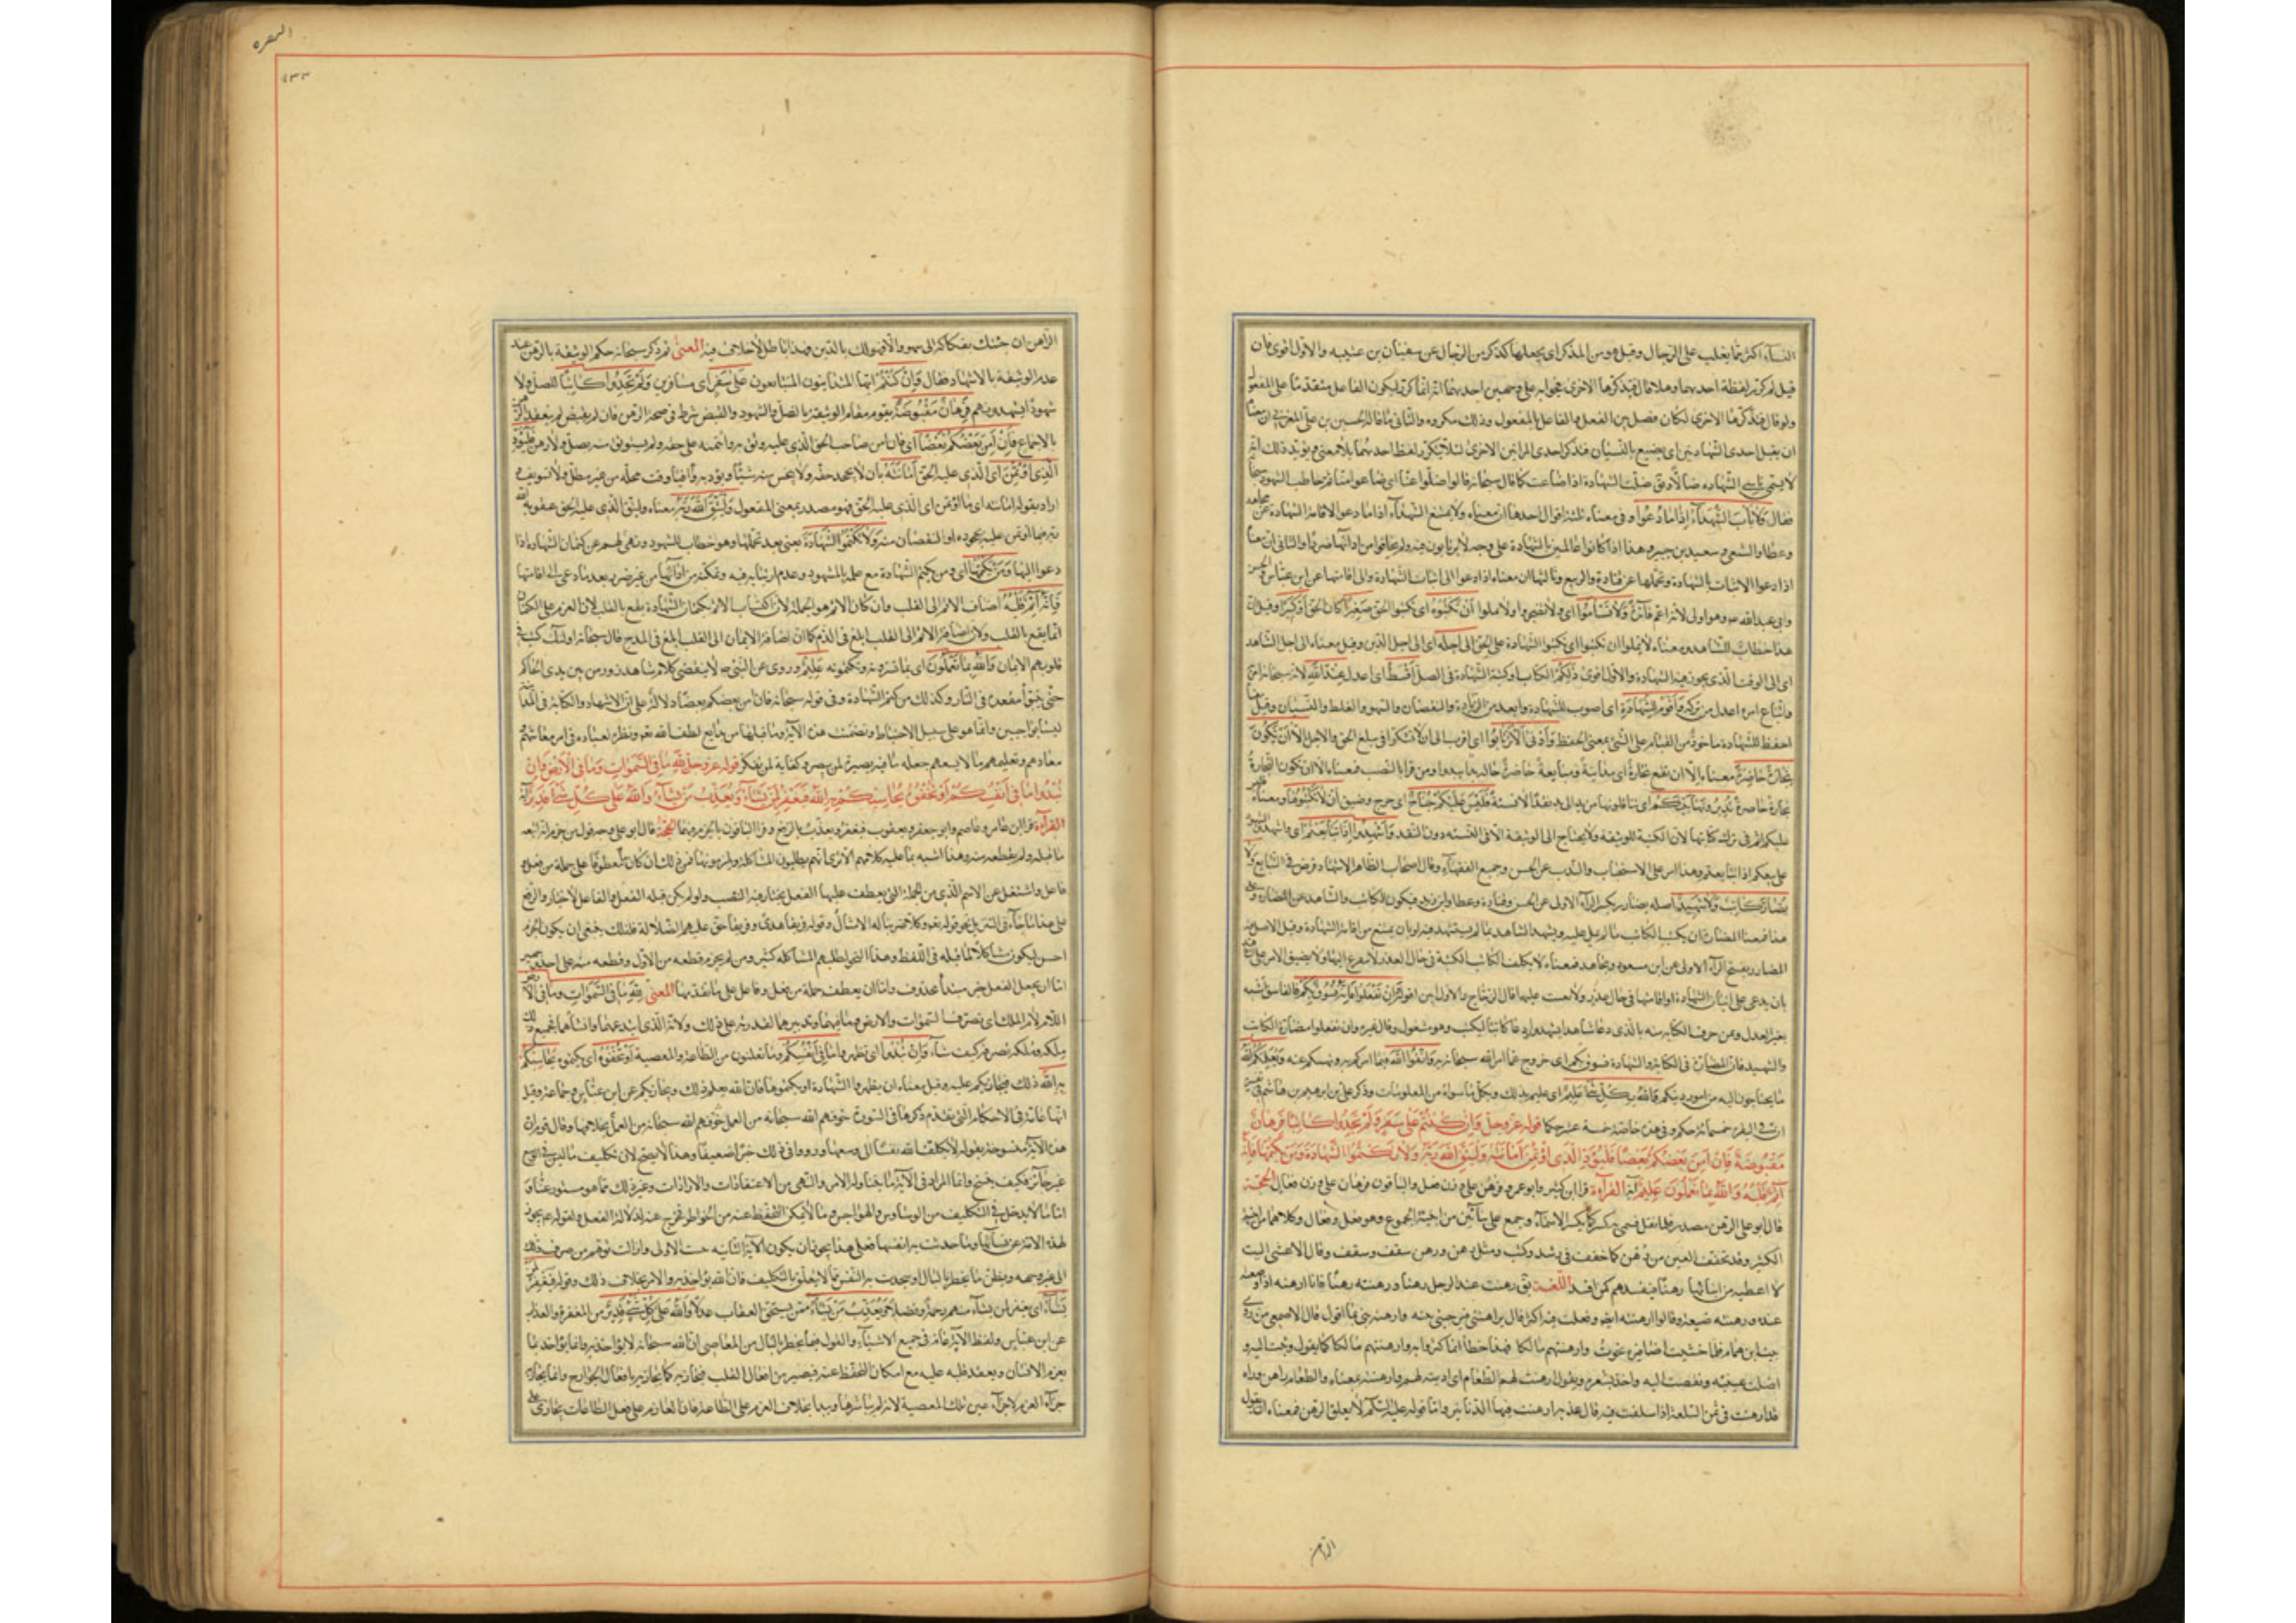 النسآء اكثر مما يغلب على الرجال وقيل هو من الذكر اى يجعلها كذكر من الرجال عن سفيان بن عيينه والاول اقوى فان
قيل لم كرر لفظة احديهما وهلا قال فتذكرها الاخرى فجوابه على وجهين احدهما انه انما كرر ليكون الفاعل متقدما على المفعول
ولو قال فتذكرها الاخرى لكان فصل بين الفعل والفاعل بالمفعول وذلك مكروه والثانى ما قاله الحسين بن على المغربى ان معناه
ان يضل احدى الشهادتين اى يضيع بالنسيان فتذكر احدى المراتين الاخرى لئلا يتكرر لفظ احديهما بلا معنى ويؤيد ذلك انه
لا يسمى ناسى الشهاده ضالا ويق ضلت الشهادة اذا ضاعت كما قال سبحانه قالوا ضلوا عنا اى ضاعوا منا ثم خاطب الشهود
فقال وَلَا يَأْبَ الشُّهَدَآءُ اِذَا مَا دُعُوا وفى معناه ثلثة اقوال احدها ان معناه ولا يمتنع الشهدآء اذا ما دعوا لاقامة الشهادة عن مجاهد
وعطا والشعبى وسعيد بن جبير وهذا اذا كانوا عالمين بالشهادة على وجه لا يرتابون فيه ولم يخافوا من ادائها ضررا والثانى ان معناه
اذا دعوا لاثبات الشهادة وتحملها عن قتادة والربيع وثالثها ان معناه اذا دعوا الى اثبات الشهادة والى اقامتها عن ابن عباس والحسن
وابى عبد الله ع وهو اولى لانه اعم فآئدة وَلَا تَسْأَمُوا اى ولا تضجروا ولا تملوا اَنْ تَكْتُبُوهُ اى تكتبوا الحق صَغِيرًا كان الحق اَوْ كَبِيرًا وقيل ان
هذا خطاب للشاهد ومعناه لا تملوا ان تكتبوا الشهادة على الحق اِلى اَجَلِه اى الى اجل الدين وقيل معناه الى اجل الشاهد
اى الى الوقت الذى يجوز فيه الشهاده والاول اقوى ذَلِكُمْ الكتاب او كتبة الشهادة فى الصك اَقْسَطُ اى اعدل عِنْدَ اللّٰهِ لانه سبحانه امر به
واتباع امره اعدل من تركه وَاَقْوَمُ لِلشَّهَادَةِ اى اصوب للشهادة وابعد من الزيادة والنقصان والسهو والغلط والنسيان وقيل معناه
احفظ للشهادة ماخوذ من القيام على الشىء بمعنى الحفظ وَاَدْنى اَلَّا تَرْتَابُوا اى اقرب الى ان لا تشكوا فى مبلغ الحق والاجل اِلَّا اَنْ تَكُونَ
تِجَارَةً حَاضِرَةً معناه الا ان تقع تجارة اى مداينة ومبايعة حاضرة حالة يدا بيد ومن قرا بالنصب فمعناه الا ان تكون التجارة
تجارة حاضرة تُدِيرُونَهَا بَيْنَكُمْ اى تتناقلونها من يد الى يد نقدا لا نسيئة فَلَيْسَ عَلَيْكُمْ جُنَاحٌ اى حرج وضيق اَنْ لَا تَكْتُبُوهَا ومعناه فليس
عليكم اثم فى ترك كتابتها لان الكتبة للوثيقة ولا يحتاج الى الوثيقة الا فى النسيئه دون النقد وَاَشْهِدُوا اِذَا تَبَايَعْتُمْ اى واشهدوا الشهود
على بيعكم اذا تبايعتم وهذا امر على الاستحباب والندب عن الحسن وجميع الفقهاء وقال اصحاب الظاهر الاشهاد فرض فى التبايع وَلَا
يُضَارَّ كَاتِبٌ وَلَا شَهِيدٌ اصله يضارر بكسر الرآء الاولى عن الحسن وقتادة وعطا وابن زيد فيكون الكاتب والشاهد
هذا فمعنا المضارة ان يكتب الكاتب ما لم يمل عليه ويشهد الشاهد بما لم يستشهد فيه او بان يمتنع من اقامة الشهادة وقيل الاصل فيه
المضارر بفتح الرآء الاولى عن ابن مسعود ومجاهد فمعناه لا يكلف الكاتب الكتبة فى حال العذر لا يتفرغ اليها ولا يضيق الامر على
بان يدعى على اثبات الشهادة او اقامتها فى حال عذر ولا يعنت عليهما قال الزجاج والاول ابين لقوله وَاِنْ تَفْعَلُوا فَاِنَّهُ فُسُوقٌ بِكُمْ فالفاسق اشبه
بغير العدل وبمن حرف الكتابة منه بالذى دعا شاهدا ليشهد او دعا كاتبا ليكتب وهو مشغول وقال غيره وان تفعلوا مضارة الكاتب
والشهيد فان المضارة فى الكتابة والشهادة فسوق بكم اى خروج عما امر الله سبحانه به وَاتَّقُوا اللّٰهَ فيما امركم به ونهيكم عنه وَيُعَلِّمُكُمُ اللّٰهُ
ما يحتاجون اليه من امور دينكم وَاللّٰهُ بِكُلِّ شَىْءٍ عَلِيمٌ اى عليم بذلك وبكل ما سواه من المعلومات وذكر على بن ابرهيم بن هاشم فى تفسيره
ان فى البقره خمسمائة حكم وفى هذه خاصة خمسة عشر حكما قوله عز وجل وَاِنْ كُنْتُمْ عَلى سَفَرٍ وَلَمْ تَجِدُوا كَاتِبًا فَرِهَانٌ
مَقْبُوضَةٌ فَاِنْ اَمِنَ بَعْضُكُمْ بَعْضًا فَلْيُؤَدِّ الَّذِى اؤْتُمِنَ اَمَانَتَهُ وَلْيَتَّقِ اللّٰهَ رَبَّهُ وَلَا تَكْتُمُوا الشَّهَادَةَ وَمَنْ يَكْتُمْهَا فَاِنَّهُ
آثِمٌ قَلْبُهُ وَاللّٰهُ بِمَا تَعْمَلُونَ عَلِيمٌ آية القرآءة قرا ابن كثير وابو عمرو فرهن على وزن فعل والباقون فرهان على وزن فعال الحجة
قال ابو على الرهن مصدر فلما نقل فسمى به كسر كما يكسر الاسمآء وجمع على بنآئين من ابنية الجموع وهو فعل وفعال وكلاهما من ابنية
الكثير وقد يخفف العين من رهن كما خفف فى رسل وكتب ومثل رهن ورهن سقف وسقف وقال الاعشى اليت
لا اعطيه من ابنائنا رهنا فيفسدهم كمن افسدا اللغة يق رهنت عند الرجل رهنا ورهنته رهنا فانا ارهنه اذا وضعته
عنده ورهنته ضيعة وقالوا ارهنته ايضا وفعلت فيه اكثر قال يراهننى فيرهننى بنيه وارهنه بنى بما اقول قال الاصمعى من روى
بيت ابن همام فلما خشيت اظافيره نجوت وارهنتهم مالكا فقد اخطأ انما الرواية وارهنهم مالكا كما يقول وثبت اليه و
اصك عينه ونهضت اليه واخذ بشعره ويقول ارهنت لهم الطعام اى ادمته لهم وارهيته بمعناه والطعام راهن وراه
وقد ارهنت فى ثمن السلعة اذا اسلفت فيه قال ارهنت فيها الدنانير واما قوله عليه السلام لا يغلق الرهن فمعناه ان يقول
الراهن
البقره
الراهن ان جئتك بفكاكه الى شهر والا فهو لك بالدين فهذا باطل بلا خلاف فيه المعنى ثم ذكر سبحانه حكم الوثيقة بالرهن عند
عدم الوثيقة بالاشهاد فقال وَاِنْ كُنْتُمْ ايها المتداينون المتبايعون عَلى سَفَرٍ اى مسافرين وَلَمْ تَجِدُوا كَاتِبًا للصك ولا
شهودا تشهدونهم فَرِهَانٌ مَقْبُوضَةٌ يقوم مقام الوثيقة بالصك والشهود والقبض شرط فى صحة الرهن فان لم يقبض لم ينعقد الرهن
بالاجماع فَاِنْ اَمِنَ بَعْضُكُمْ بَعْضًا اى فان امن صاحب الحق الذى عليه ووثق به وائتمنه على حقه ولم يستوثق منه بصك ولا رهن فَلْيُؤَدِّ
الَّذِى اؤْتُمِنَ اى الذى عليه الحق اَمَانَتَهُ بان لا يجحد حقه ولا يبخس منه شيئا ويؤديه وافيا وقت محله من غير مطل ولا تسويف و
اراد بقوله امانته اى ما اؤتمن اى الذى عليه الحق فهو مصدر بمعنى المفعول وَلْيَتَّقِ اللّٰهَ رَبَّهُ معناه وليتق الذى عليه الحق عقوبة الله
ربه فيما اؤتمن عليه بجحوده او النقصان منه وَلَا تَكْتُمُوا الشَّهَادَةَ يعنى بعد تحملها وهو خطاب للشهود ونهى لهم عن كتمان الشهاده اذا
دعوا اليها وَمَنْ يَكْتُمْهَا اى ومن يكتم الشهادة مع علمه بالمشهود وعدم ارتيابه فيه وتمكنه من ادائها من غير ضرر بعد ما دعى الى اقامتها
فَاِنَّهُ آثِمٌ قَلْبُهُ اضاف الاثم الى القلب وان كان الاثم هو الجملة لان اكتساب الاثم بكتمان الشهادة يقع بالقلب لان العزم على الكتمان
انما يقع بالقلب ولان اضافة الاثم الى القلب ابلغ فى الذم كما ان اضافة الايمان الى القلب ابلغ فى المدح قال سبحانه اولئك كتب فى
قلوبهم الايمان وَاللّٰهُ بِمَا تَعْمَلُونَ اى بما تسرونه وتكتمونه عَلِيمٌ وروى عن النبى ص لا ينقضى كلام شاهد زور من بين يدى الحاكم
حتى يتبوأ مقعده فى النار وكذلك من كتم الشهادة وفى قوله سبحانه فان امن بعضكم بعضا دلالة على ان الاشهاد والكتابة فى المداينة
ليسا بواجبين وانما هو على سبيل الاحتياط وتضمنت هذه الآية وما قبلها من بدايع لطف الله تعم ونظره لعباده فى امر معاشهم
معادهم وتعليمهم ما لا يسعهم جهله ما فيه بصيرة لمن تبصر وكفاية لمن تفكر قوله عز وجل لِلّٰهِ مَا فِى السَّموَاتِ وَمَا فِى الْاَرْضِ وَاِنْ
تُبْدُوا مَا فِى اَنْفُسِكُمْ اَوْ تُخْفُوهُ يُحَاسِبْكُمْ بِهِ اللّٰهُ فَيَغْفِرُ لِمَنْ يَشَآءُ وَيُعَذِّبُ مَنْ يَشَآءُ وَاللّٰهُ عَلى كُلِّ شَىْءٍ قَدِيرٌ آية
القرآءة قرا ابن عامر وعاصم وابو جعفر ويعقوب فيغفر ويعذب بالرفع وقرا الباقون بالجزم فيهما الحجة قال ابو على وجه قول من جزم انه اتبعه
ما قبله ولم يقطعه منه وهذا اشبه بما عليه كلامهم الا ترى انهم يطلبون المشاكلة ويلزمونها فمن ذلك ان ما كان معطوفا على جملة من فعل و
فاعل واشتغل عن الاسم الذى من الجملة التى يعطف عليها الفعل يختار فيه النصب ولو لم يكن قبله الفعل والفاعل لاختار والرفع
على هذا ما جآء فى التنزيل نحو قوله تعم وكلا ضربنا له الامثال وقوله فريقا هدى وفريقا حق عليهم الضلالة فلذلك ينبغى ان يكون الجزم
احسن ليكون مشاكلا لما قبله فى اللفظ وهذا النحو لطلبهم المشاكله كثير ومن لم يجزم قطعه من الاول وقطعه منه على احد وجهين
اما ان يجعل الفعل خبر مبتدأ محذوف واما ان يعطف جملة من فعل وفاعل على ما تقدمها المعنى لِلّٰهِ مَا فِى السَّموَاتِ وَمَا فِى الْاَرْضِ
اللام لام الملك اى له تصرف السموات والارض وما فيهما وتدبيرهما لقدرته على ذلك ولانه الذى ابتدعهما وانشأهما فجميع ذلك
ملكه وملكه يصرفه كيف شآء وَاِنْ تُبْدُوا اى تظهروا مَا فِى اَنْفُسِكُمْ وما تعلنون من الطاعة والمعصية اَوْ تُخْفُوهُ اى تكتموه يُحَاسِبْكُمْ
بِهِ اللّٰهُ ذلك فيجازيكم عليه وقيل معناه ان يظهروا الشهادة او يكتموها فان الله يعلم ذلك ويجازيكم عن ابن عباس وجماعة وقيل
انها عامة فى الاحكام التى تقدم ذكرها فى السورة خوفهم الله سبحانه من العمل بخلافها وقال قوم ان
هذه الآية منسوخة بقوله لا يكلف الله نفسا الا وسعها ورووا فى ذلك خبرا ضعيفا وهذا لا يصح لان تكليف ما ليس فى الوسع
غير جآئز فكيف ينسخ وانما المراد فى الآية ما يتناوله الامر والنهى من الاعتقادات والارادات وغير ذلك مما هو مستور عنا و
اما ما لا يدخل فى التكليف من الوساوس والهواجس وما لا يمكن التحفظ عنه من الخواطر فخارج عنه لدلالة العقل ولقوله ع يجوز
لهذه الامة عن نسيانها وما حدثت به انفسها فعلى هذا يجوز ان يكون الآية الثانيه بينت الاولى وازالت توهم من صرف ذلك
الى غير وجهه وظن ما يخطر بالبال او يتحدث به النفس مما لا يتعلق بالتكليف فان الله يؤاخذ به والامر بخلاف ذلك وقوله فَيَغْفِرُ لِمَنْ
يَشَآءُ اى يغفر لمن يشآء منهم رحمة وتفضلا وَيُعَذِّبُ مَنْ يَشَآءُ ممن يستحق العقاب عدلا وَاللّٰهُ عَلى كُلِّ شَىْءٍ قَدِيرٌ من المغفرة والعذاب
عن ابن عباس ولفظ الآية عام فى جميع الاشيآء والقول فيما يخطر بالبال من المعاصى ان الله سبحانه لا يؤاخذ به وانما يؤاخذ بما
يعزم الانسان ويعقد قلبه عليه مع امكان التحفظ عنه فيصير من افعال القلب فيجازيه كما يجازيه بافعال الجوارح وانما يجازيه
جزآء العزم لا جزآء عين تلك المعصية لانه لم يباشرها وهذا بخلاف العزم على الطاعة فان العازم على فعل الطاعات يجازى على